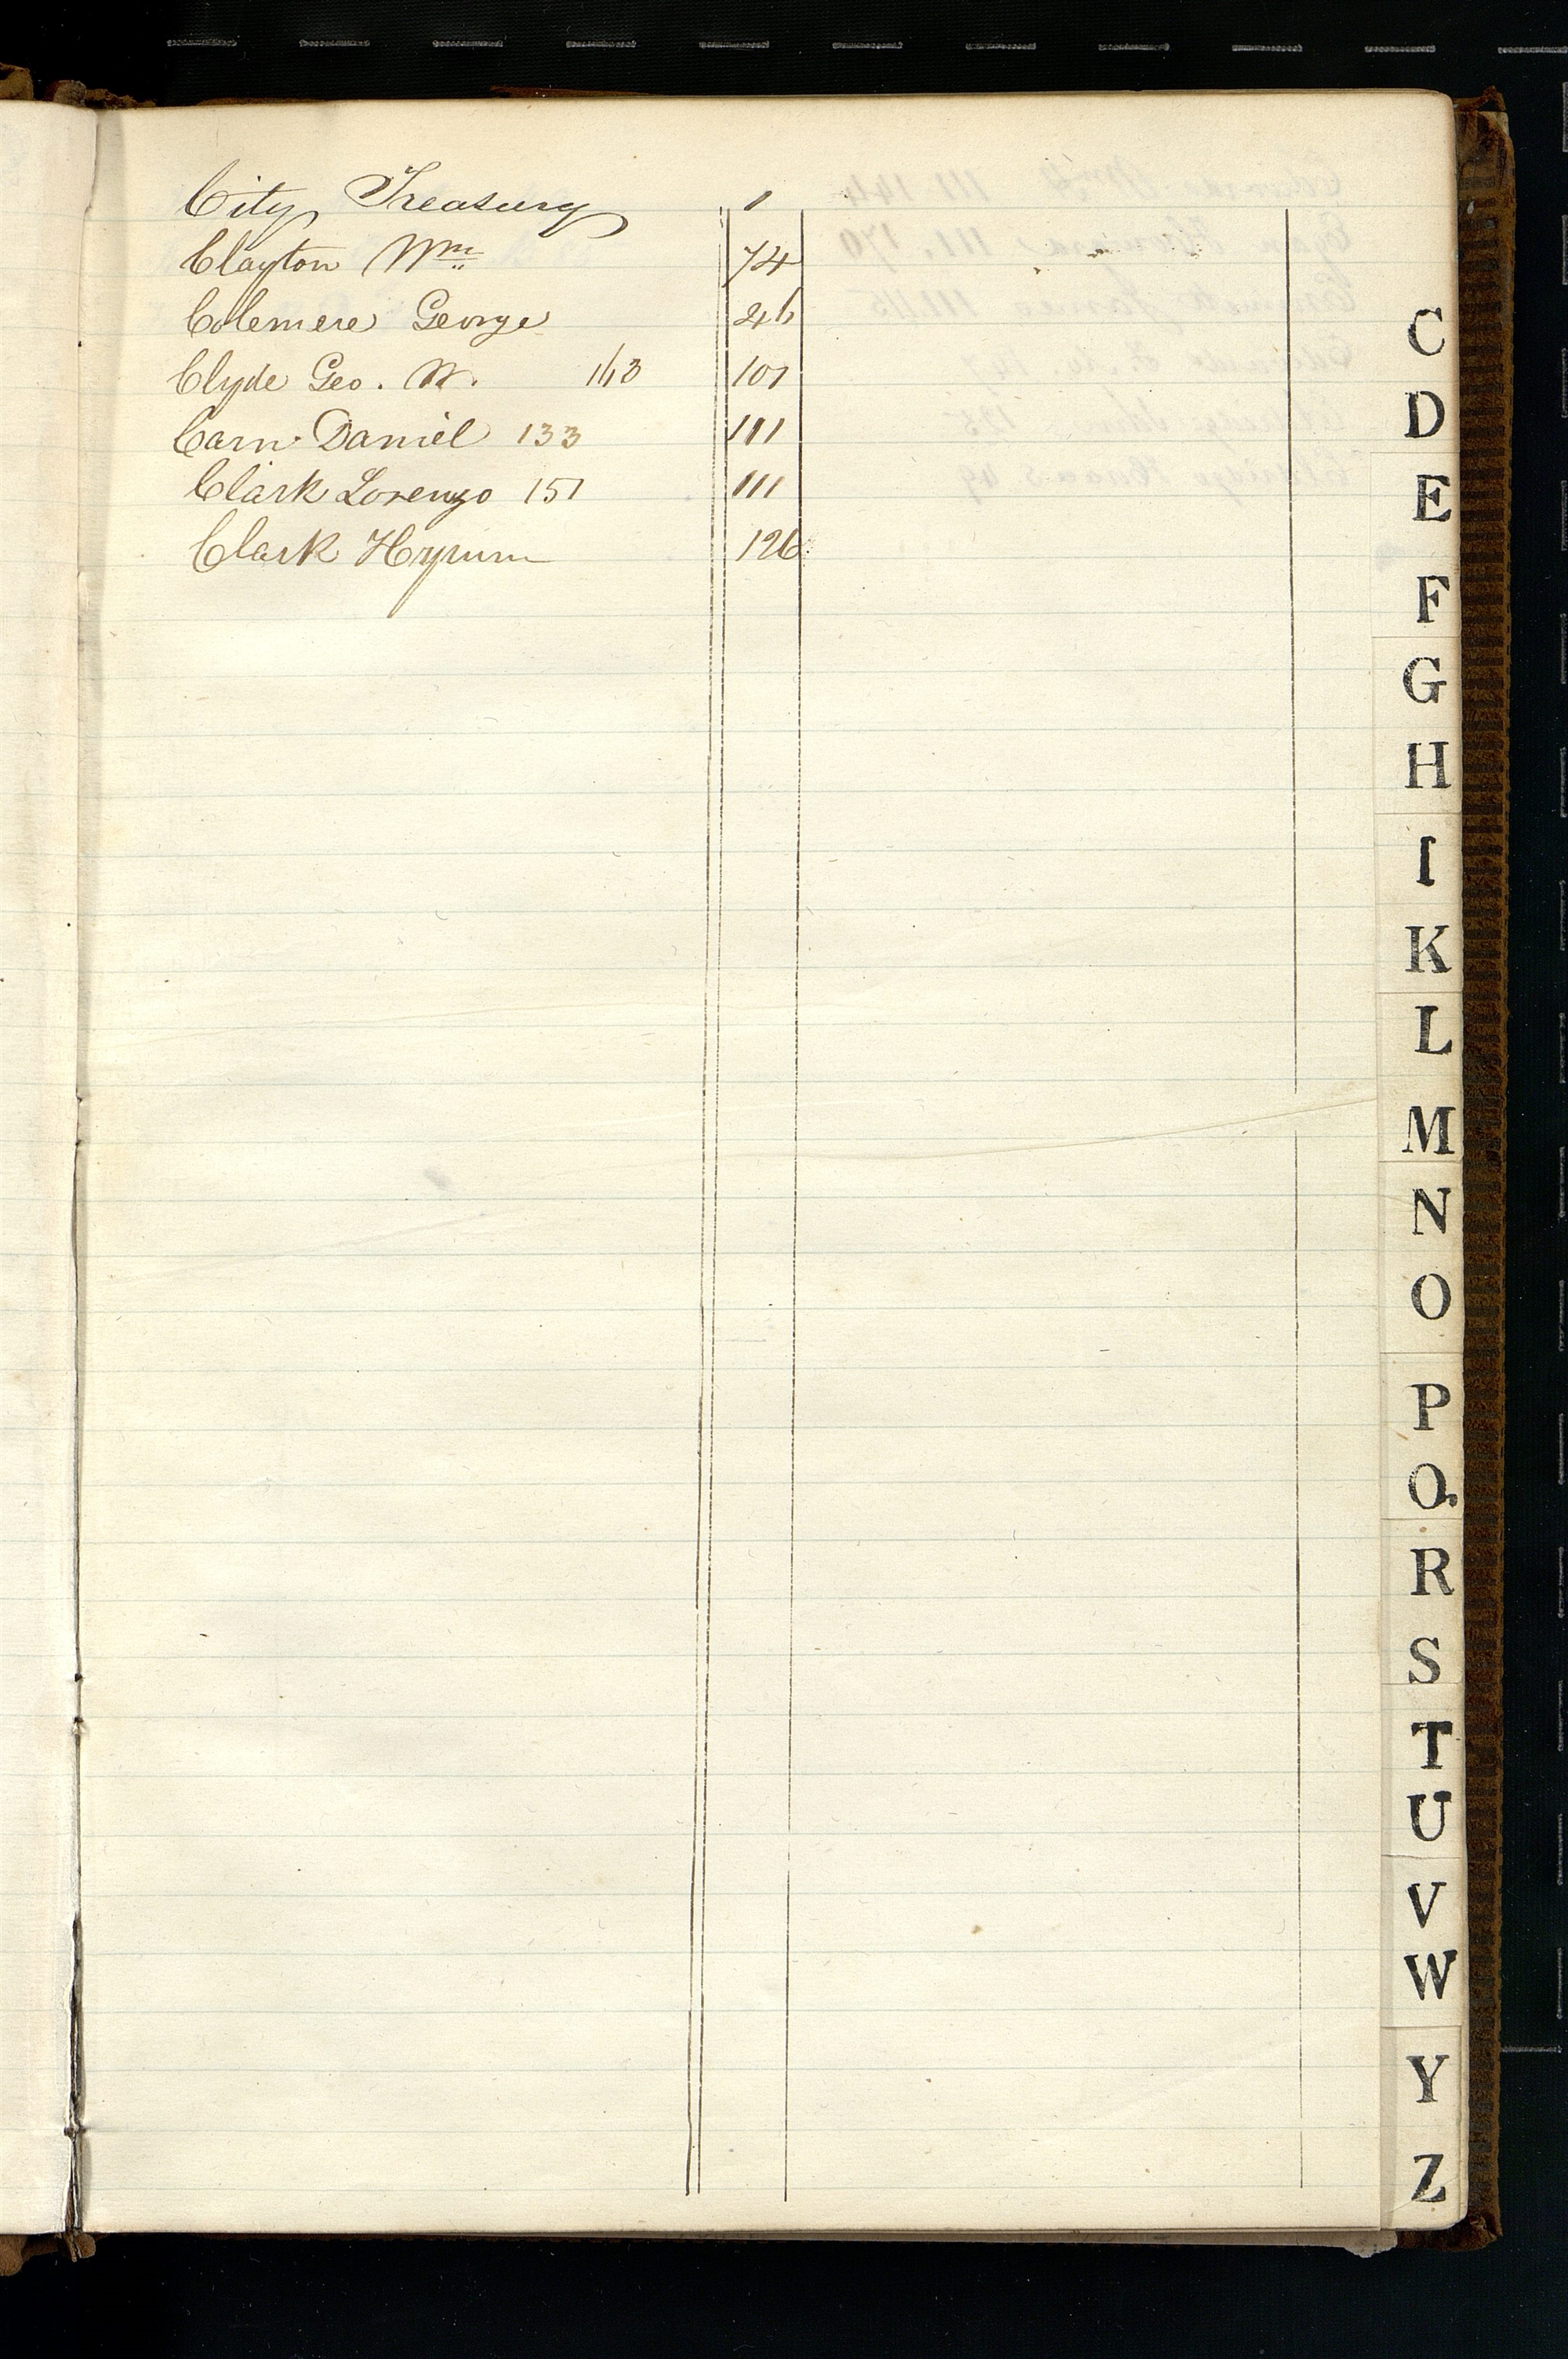 City Treasury 1
Clayton Wm 74
Colemere George 46
Clyde Geo. W. 163 107
Carn Daniel 133 111
Clark Lorenzo 151 111
Clark Hyrum 126
C
D
E
F
G
H
I
K
L
M
N
O
P
Q.
R
S
T
U
V
W
Y
Z